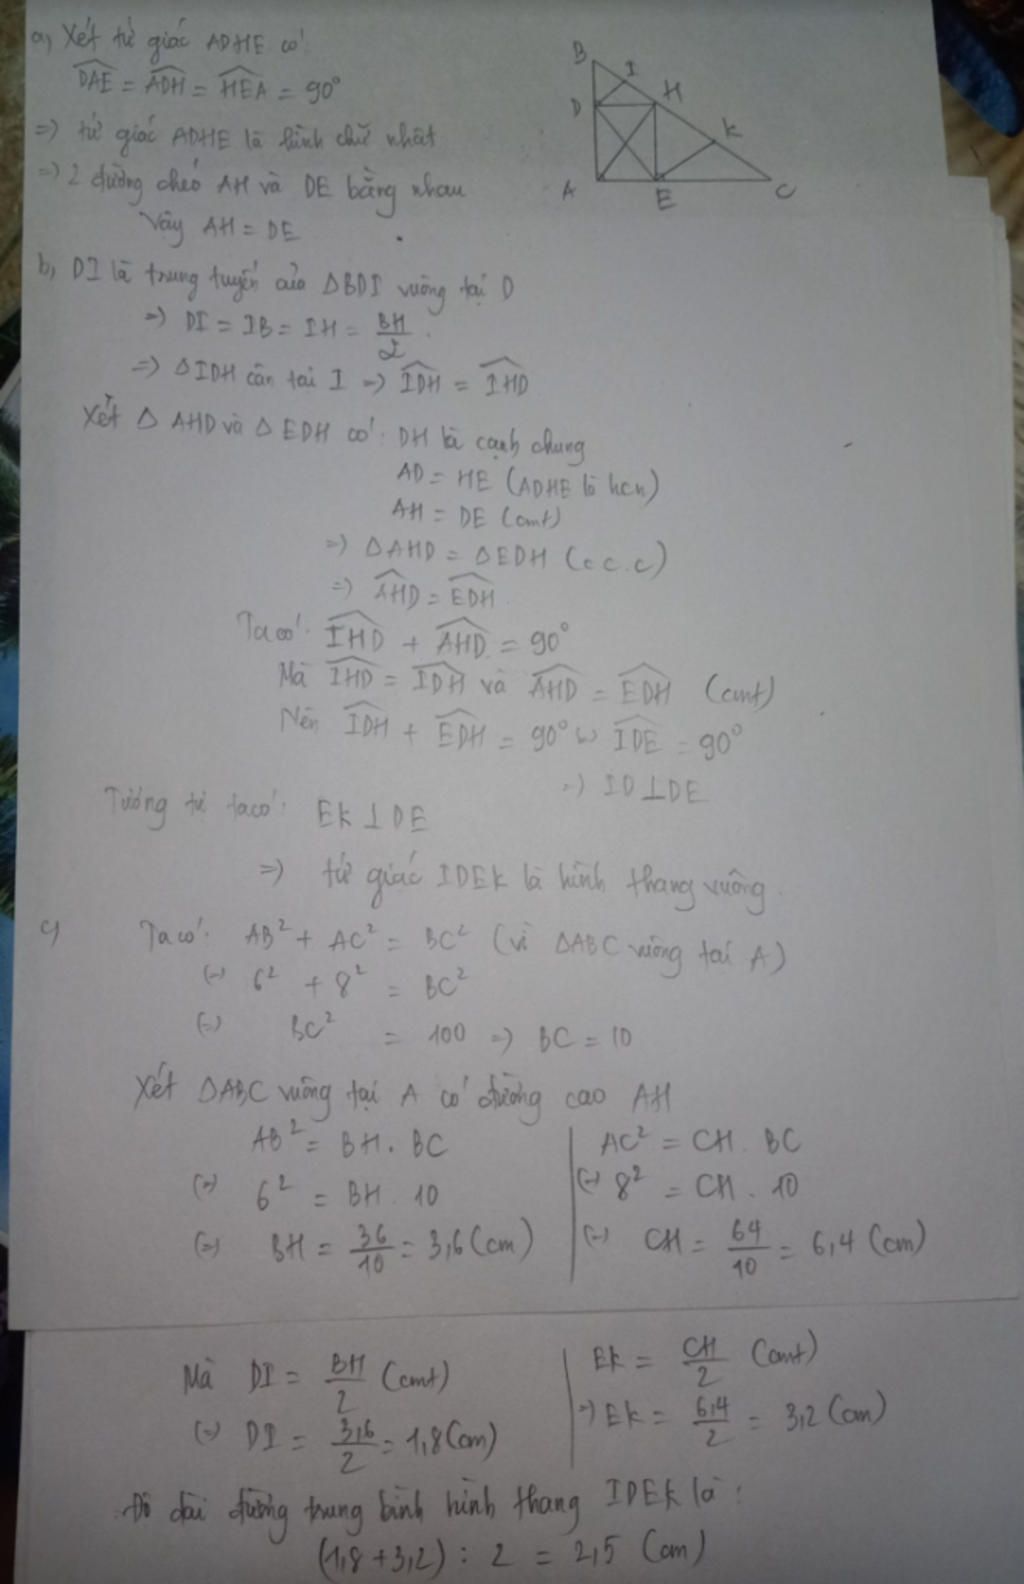 a, Xét tứ giác ADHE có:
B
I
D
H
K
A
E
C
\widehat{DAE} = \widehat{ADH} = \widehat{HEA} = 90°
=> tứ giác ADHE là hình chữ nhật
=> 2 đường chéo AH và DE bằng nhau
Vậy AH = DE
b, DI là trung tuyến của ΔBDI vuông tại D
=> DI = IB = IH = \frac{BH}{2}.
=> ΔIDH cân tại I => \widehat{IDH} = \widehat{IHD}
Xét Δ AHD và Δ EDH có: DH là cạnh chung
AD = HE (ADHE là hcn)
AH = DE (cmt)
=> ΔAHD = ΔEDH (c.c.c)
=> \widehat{AHD} = \widehat{EDH}.
Ta có: \widehat{IHD} + \widehat{AHD} = 90°
Mà \widehat{IHD} = \widehat{IDH} và \widehat{AHD} = \widehat{EDH} (cmt)
Nên \widehat{IDH} + \widehat{EDH} = 90° (=) \widehat{IDE} = 90°
=> ID⊥DE
Tương tự ta có: EK⊥DE
=> tứ giác IDEK là hình thang vuông.
c, Ta có: AB² + AC² = BC² (vì ΔABC vuông tại A)
(=) 6² + 8² = BC²
(=) BC² = 100 => BC = 10
Xét ΔABC vuông tại A có đường cao AH
AB² = BH. BC
(=) 6² = BH. 10
(=) BH = \frac{36}{10} = 3,6 (cm)
AC² = CH. BC
(=) 8² = CH. 10
(=) CH = \frac{64}{10} = 6,4 (cm)
Mà DI = \frac{BH}{2} (cmt)
(=) DI = \frac{3,6}{2} = 1,8 (cm)
EK = \frac{CH}{2} (cmt)
=> EK = \frac{6,4}{2} = 3,2 (cm)
Độ dài đường trung bình hình thang IDEK là:
(1,8 + 3,2) : 2 = 2,5 (cm)